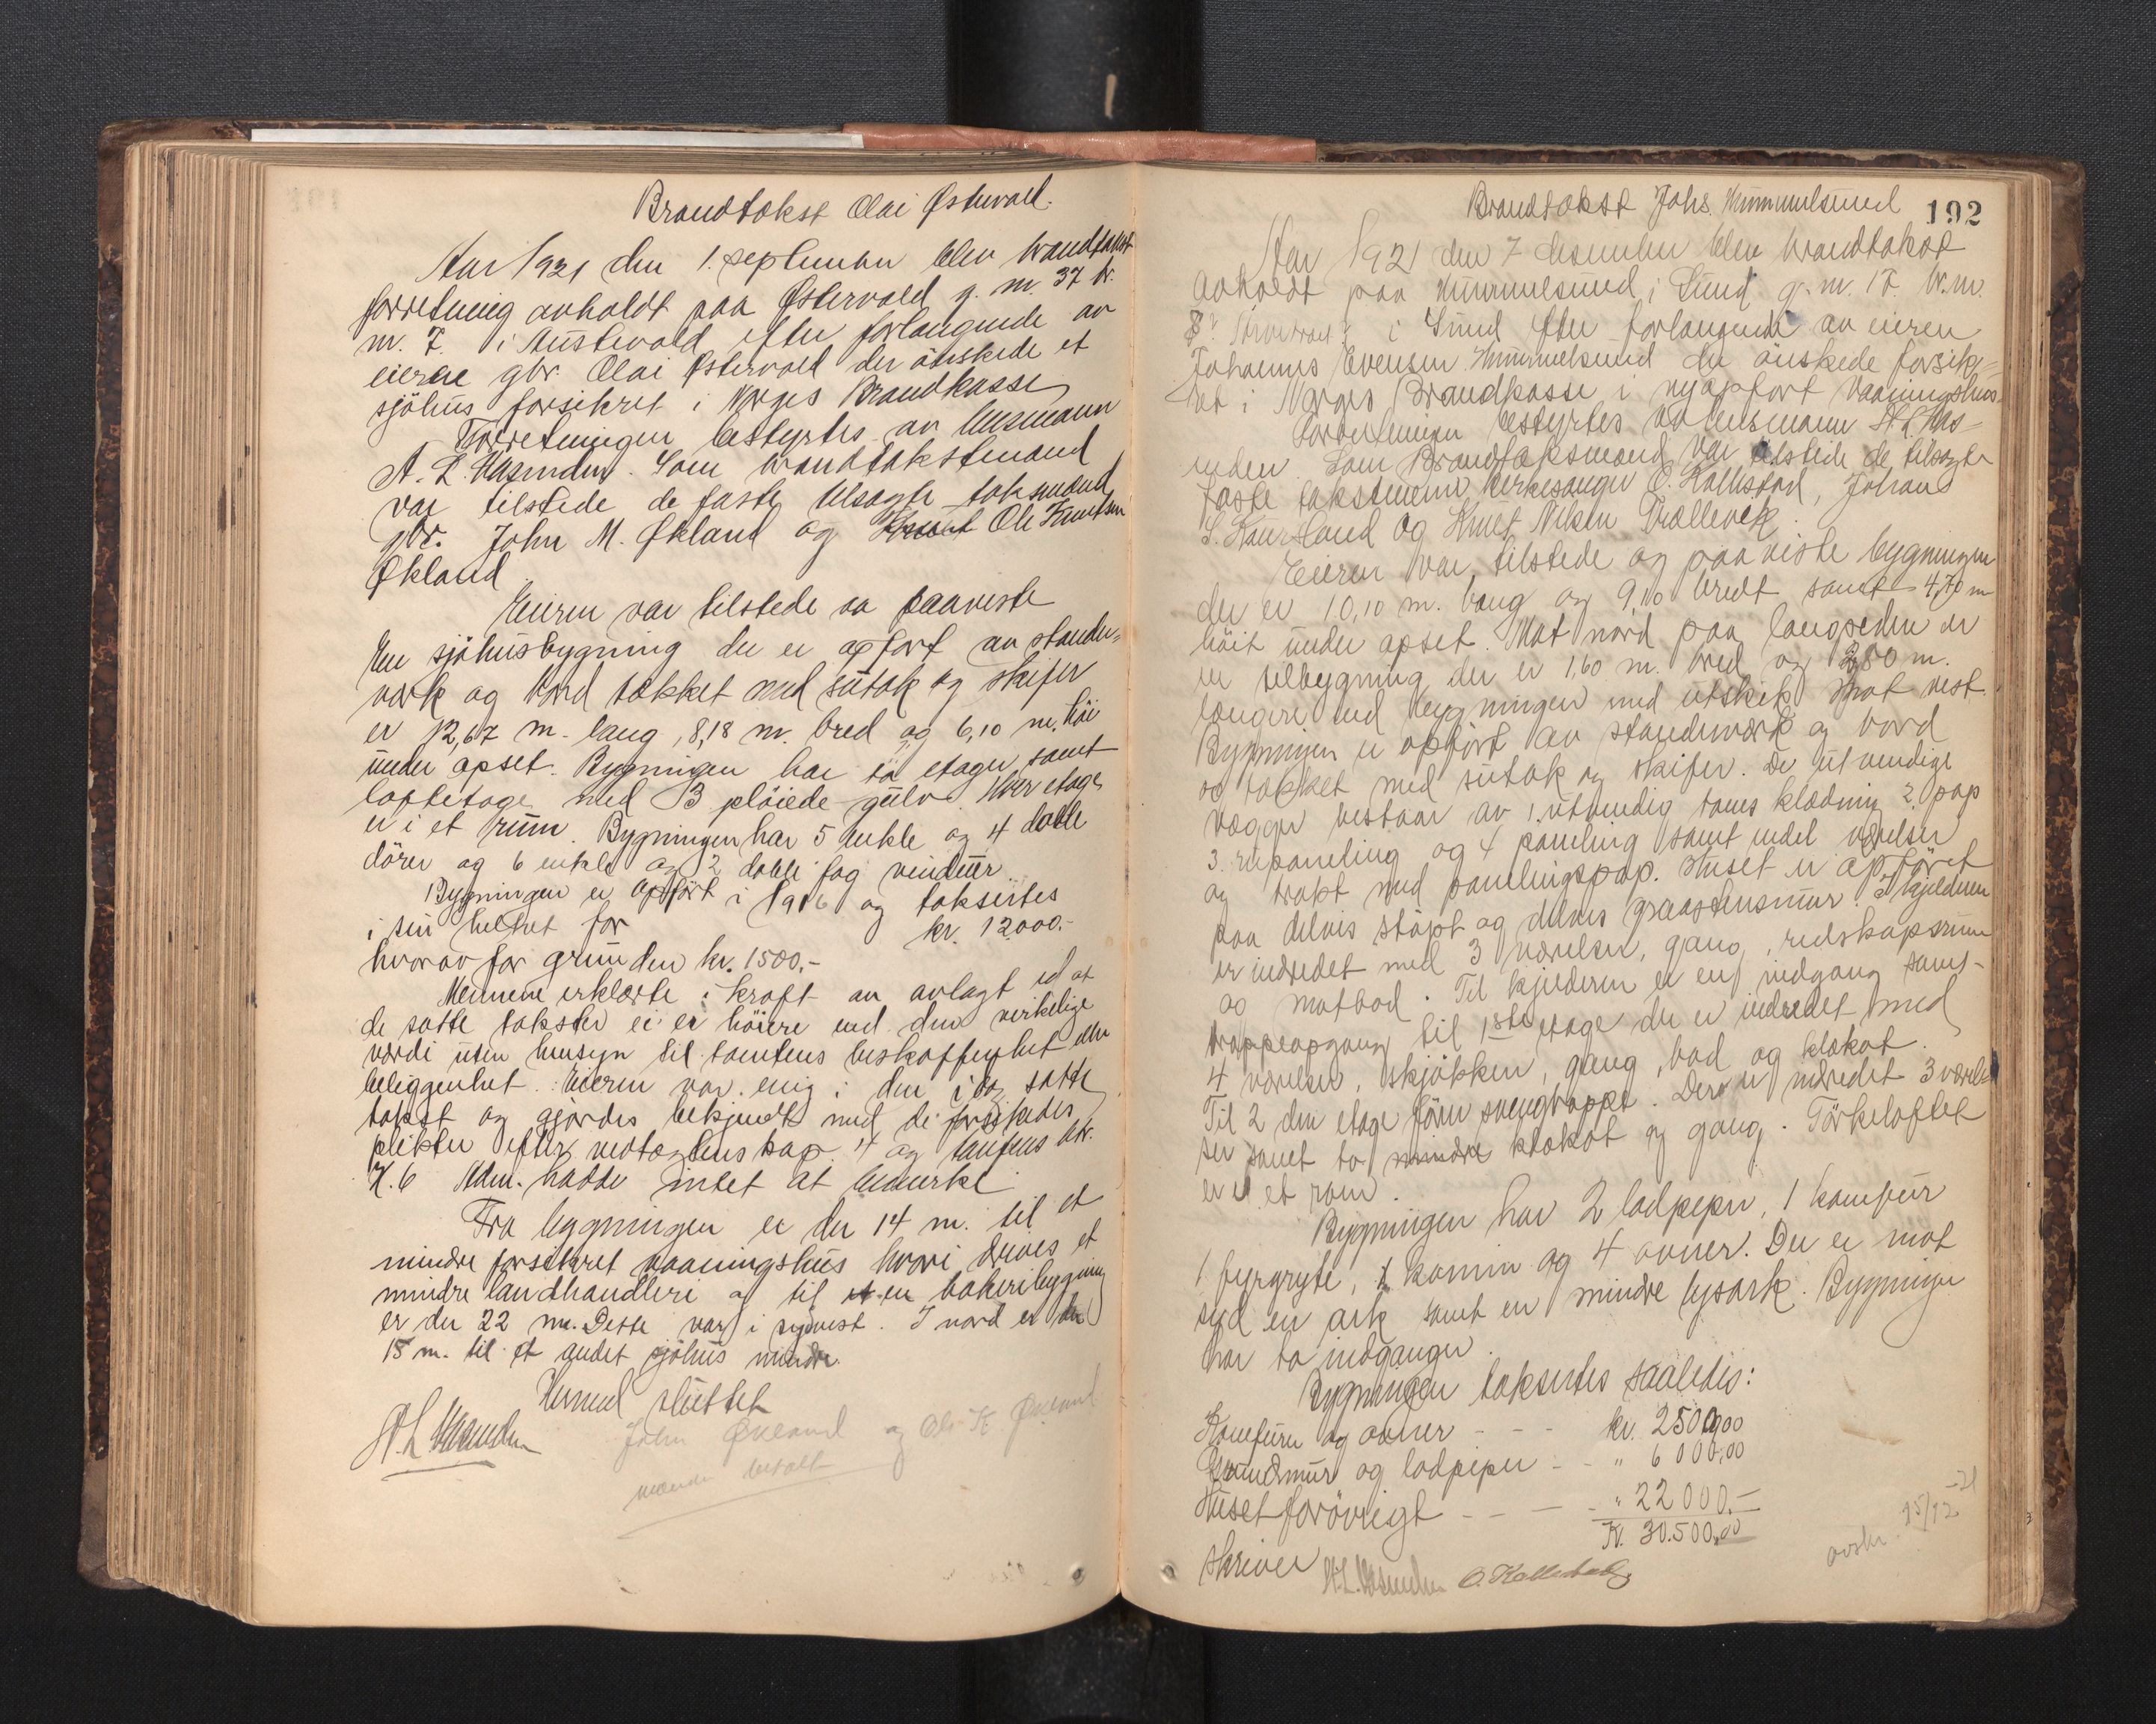 Brandtakst Olai Østervold.
Aar 1921 den 1. september blev brandtakst
forretning avholdt paa Østervold g. nr. 37 br.
nr. 7. i Austevold efter forlangende av
eieren gbr. Olai Østervold der önskede et
sjöhus forsikret i Norges Brandkasse
Forretningen bestyrtes av lensmann
A. L. Rasmussen. Som brandtakstmænd
var tilstede de faste tilsagte taksmænd
gbr. John M. Økland og Knut Ole Knutsen
Økland
Eieren var tilstede og paaviste
En sjöhusbygning der er opfort av stender-
verk og bord tækket med sutak og skifer
er 12,67 m. lang, 8,18 m. bred og 6,10 m. höi
under opset. Bygningen har to etager samt
loftetage med 3 plöiede gulv. Hver etage
er i et rum. Bygningen har 5 enkle og 4 doble
dörer og 6 enkle og 2 doble fag vinduer
Bygningen er opfört i 1916 og taksertes
i sin helhet for kr. 12000.-
hvorav for grunden kr. 1500.-
Mennene erklærte i kraft av avlagt ed at
de satte takster ei er höiere end den virkelige
værdi uten hensyn til tomtens beskaffenhet eller
beliggenhet. Eieren var enig i den i dag satte
takst og gjordes bekjendt med de forskjellige
plikter efter vedtægtens kap. 4 og lovens
K. 6 Adm. hadde intet at bemerke
Fra bygningen er der 14 m. til et
mindre forsikret vaaningshus hvori drives et
mindre landhandleri og til et en bakeribygning
er der 22 m. Dette var i sydvest. I nord er der
15 m. til et andet sjöhus mindre.
Hermed sluttet
John Økland og Ole K Økland
betalt
Brandtakst Johs. Hummelsund 192
Aar 1921 den 7 desember blev brandtakst
avholdt paa Hummelsund i Sund g. nr. 17. br. nr.
8 i Sund efter forlangende av eieren
Johannes Evensen Hummelsund der önskede forsik-
ret i Norges Brandkasse i nyopfort vaaningshus.
Forretningen bestyrtes av lensmann A. L. Ras-
mussen. Som Brandtaksmænd var tilstede de tilsagte
faste takstmenn kirkesanger O. Kallestad, Johans
S. og Knut Nilsen Trællevik.
Eieren var tilstede og paaviste bygningen
der er 10,10 m. lang og 9,10 bredt samt 4,70 m
höit under opset. Mot nord paa langsiden er
en tilbygning der er 1,60 m. bred og 2,80 m.
længere end bygningen med utskik mot vest.
Bygningen er opfört av stenderverk og bord
og tækket med sutak og skifer. De utvendige
vægger bestaar av 1. utvendig tømt klædning 2. pap
3. rupaneling og 4 paneling samt indel værelser
og trakt med panelingspap. Huset er opföret
paa delvis stöpt og delvis graastensmur. I Kjelderen
er indredet med 3 værelser, gang, redskapsrum
og matbod. Til kjelderen er en indgang samt
trappeopgang til 1ste etage der er indredet med
4 værelser, kjökken, gang, bad og klokat.
Til 2 den etage förer svengtrappe. Der er indredet 3 værel-
ser samt to mindre klokat og gang. Törkeloftet
er i et rom.
Bygningen har 2 lodpiper, 1 komfur
1 fyrgryte, 1 kamin og 4 ovner. Der er mot
syd en ark samt en mindre lysark. Bygningen
har to indganger.
Bygningen taksertes saaledes:
Komfure og ovner - - - kr. 2500,00
Grundmur og lodpiper - - " 6000,00
Huset forövrigt - - - - " 22000.-
Kr. 30.500,00
skriver O. Kallestad
avskr. 15/12 -21